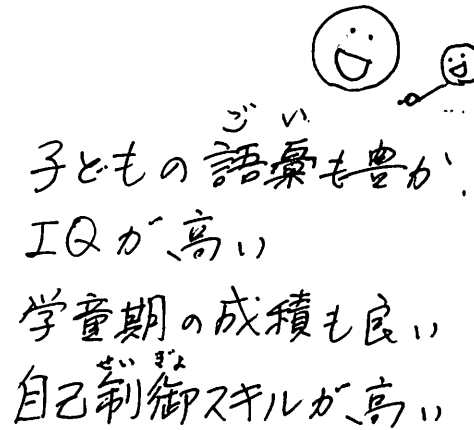 ごい
子どもの語彙も豊か.
IQが高い
学童期の成績も良い
せい ぎょ
自己制御スキルが高い